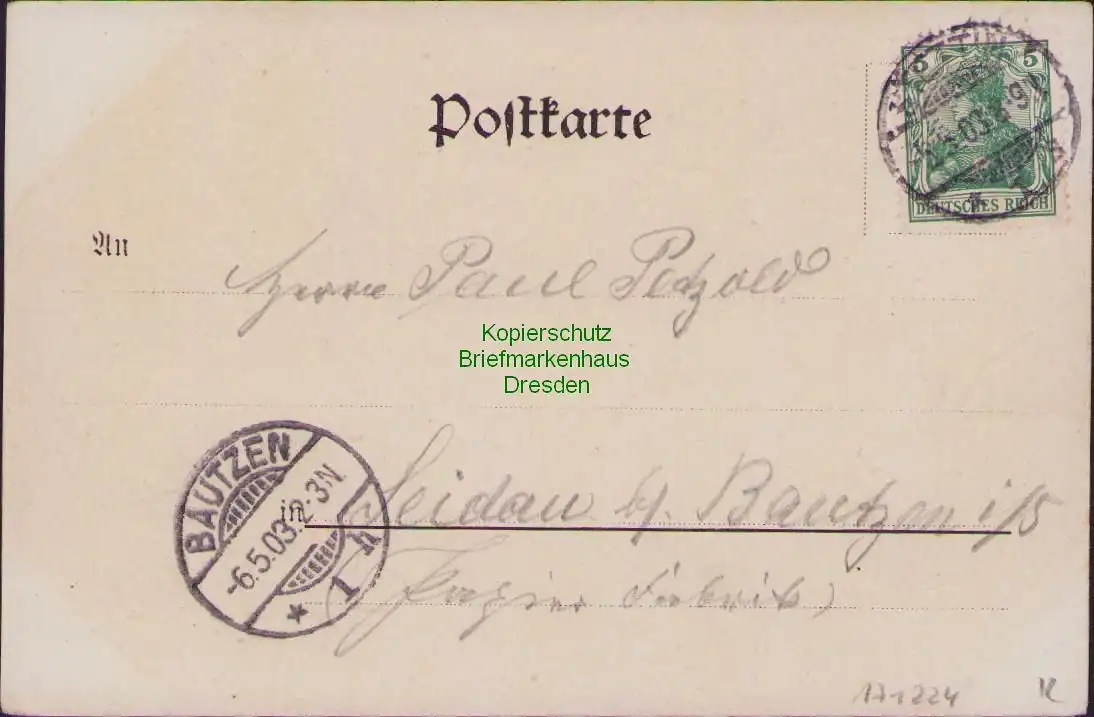 Postkarte
5 5
DEUTSCHES REICH
An
Herrn Paul Petzold
Kopierschutz
Briefmarkenhaus
Dresden
BAUTZEN
-6.5.03.2-3N.
* 1 h
in Seidau b/ Bautzen i/S
(Papier Fabrik)
171224